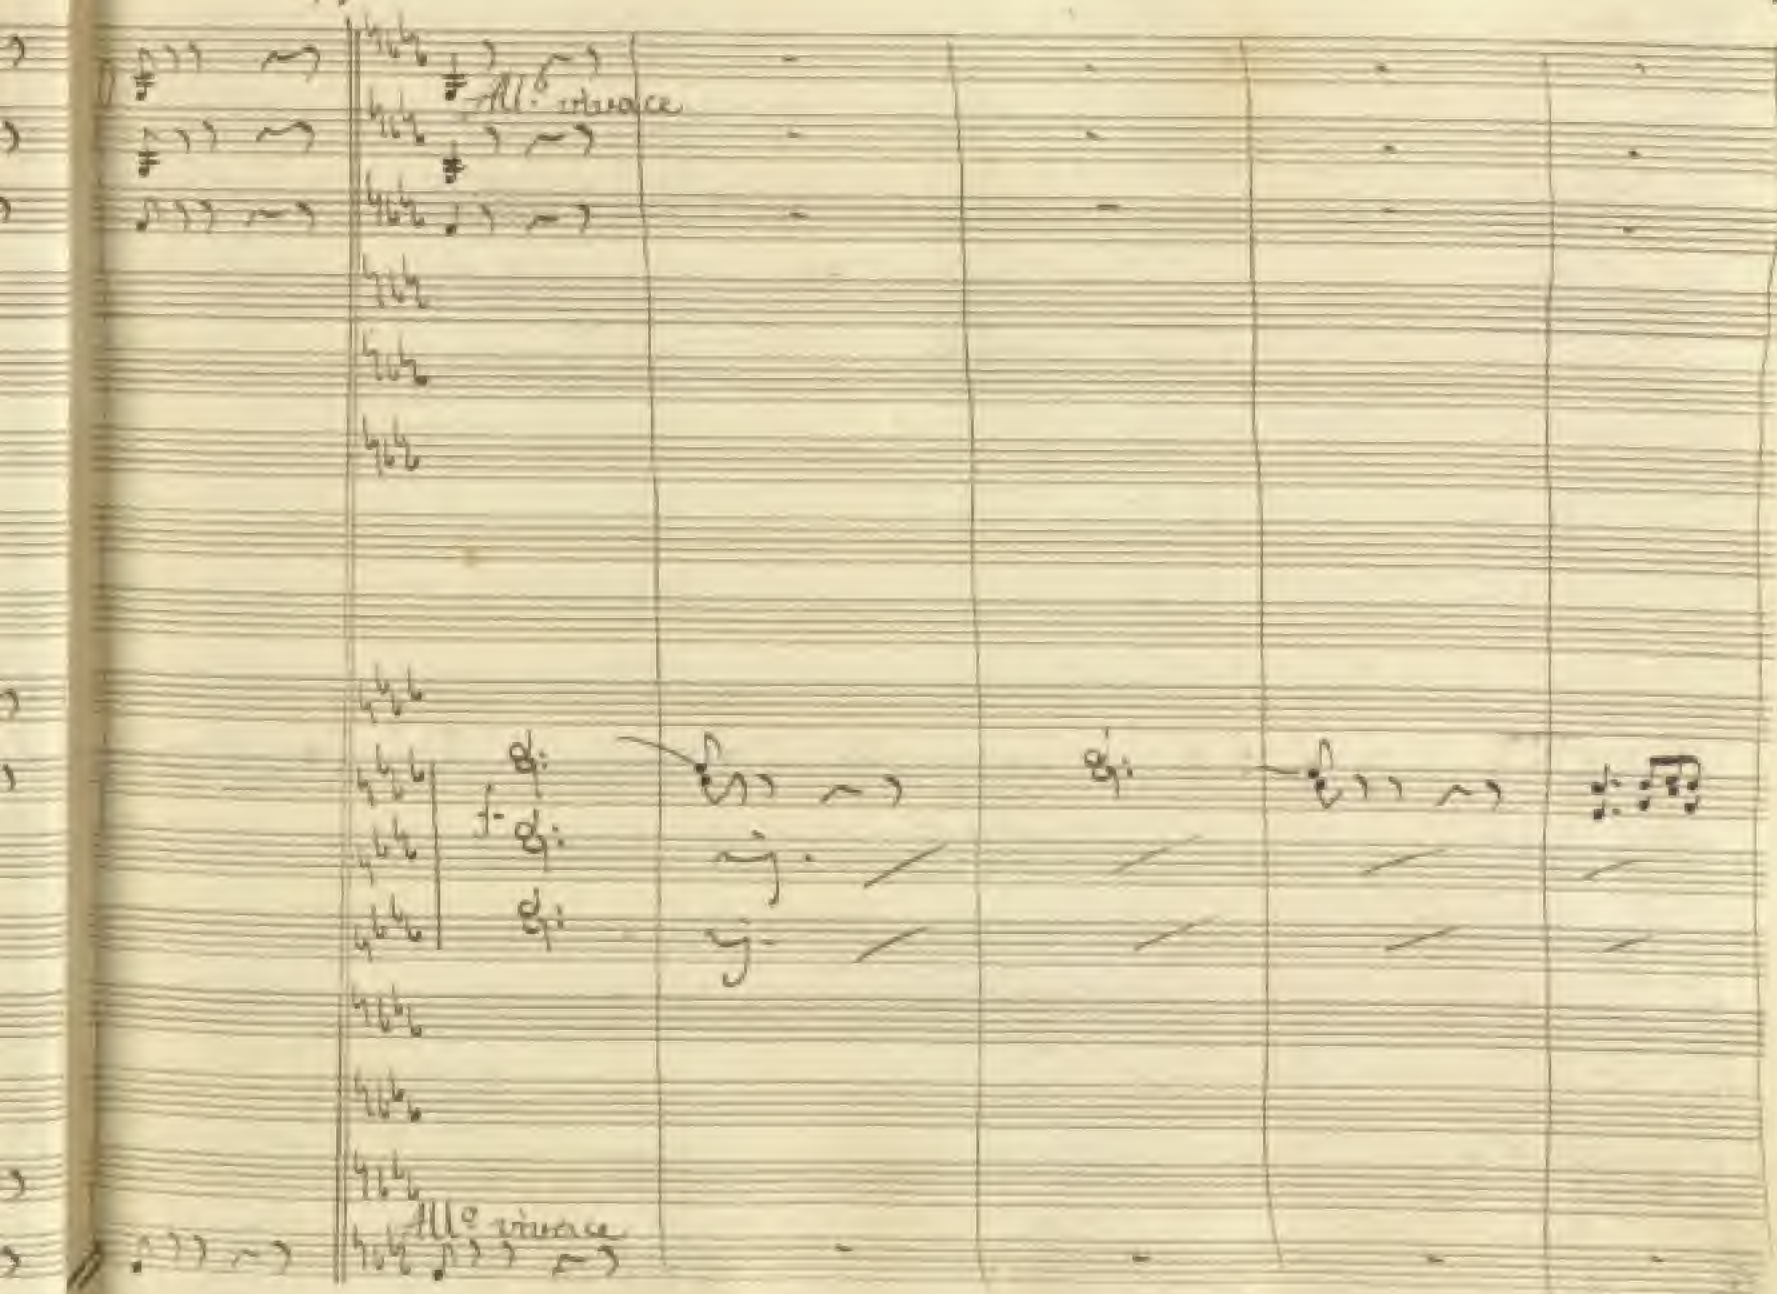 All.º vivace
f
All.º vivace